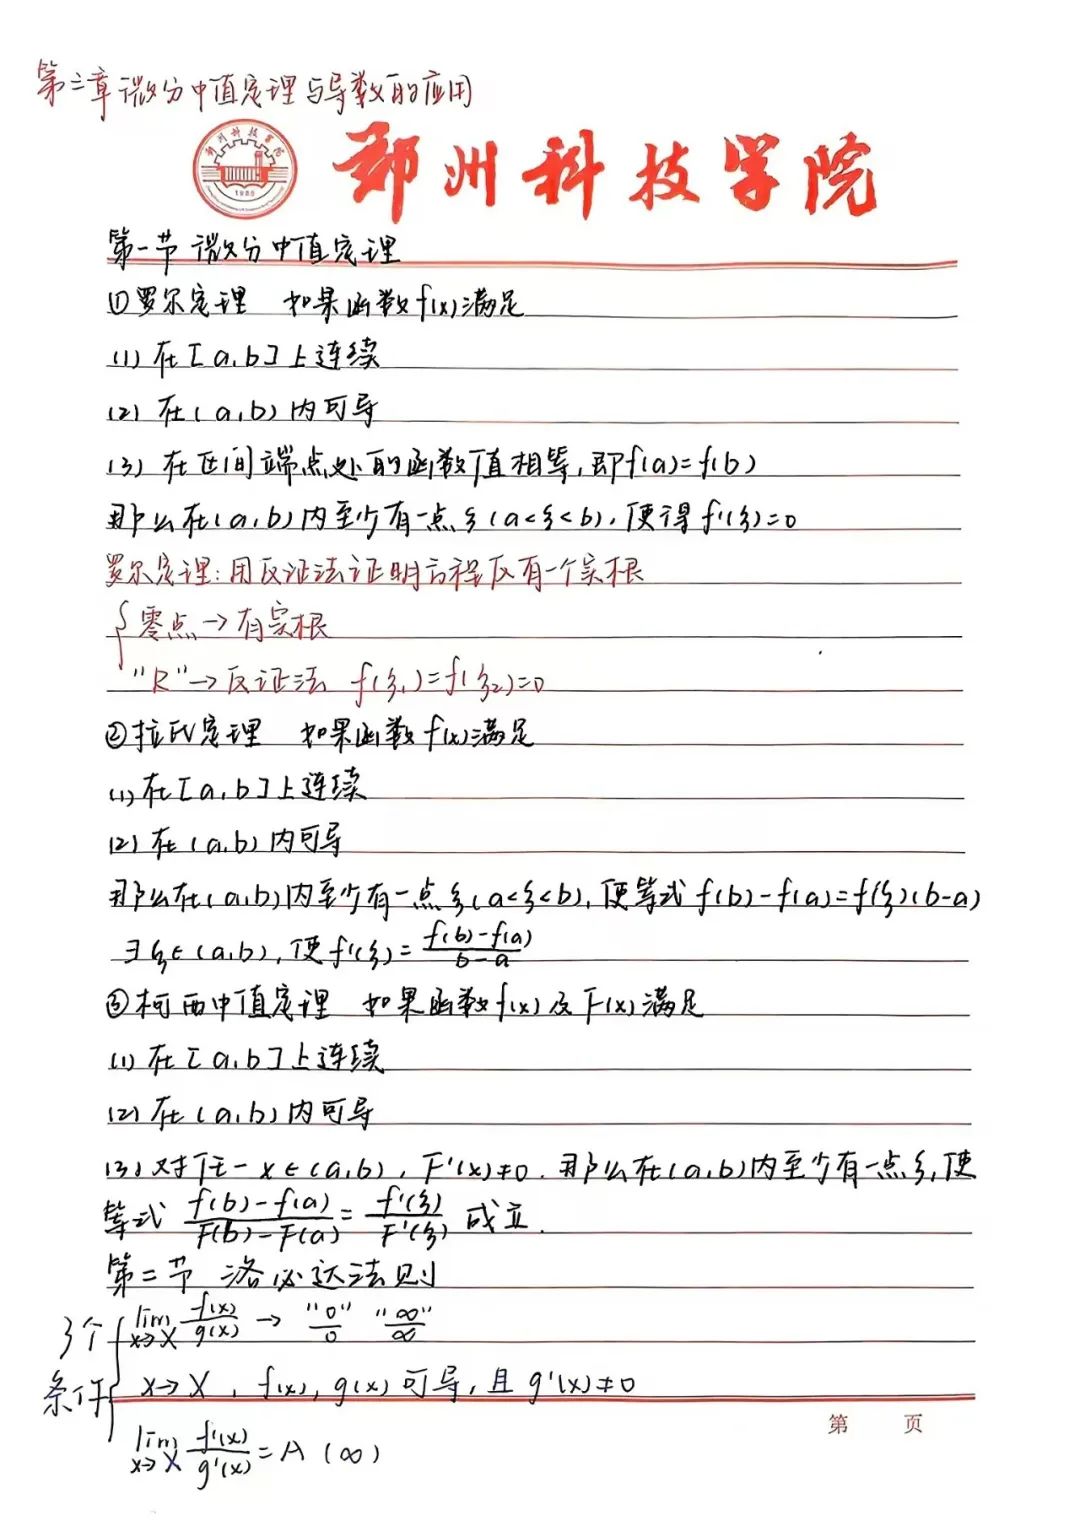 第三章 微分中值定理与导数的应用
郑州科技学院
1988
第一节 微分中值定理
①罗尔定理 如果函数f(x)满足
(1) 在[a,b]上连续
(2) 在(a,b)内可导
(3) 在区间端点处的函数值相等,即f(a)=f(b)
那么在(a,b)内至少有一点ξ(a<ξ<b),使得f'(ξ)=0
罗尔定理:用反证法证明方程仅有一个实根
{ 零点→有实根
"R"→反证法 f(ξ₁)=f(ξ₂)=0
②拉氏定理 如果函数f(x)满足
(1) 在[a,b]上连续
(2) 在(a,b)内可导
那么在(a,b)内至少有一点ξ(a<ξ<b),使等式f(b)-f(a)=f'(ξ)(b-a)
∃ξ∈(a,b),使f'(ξ)=\frac{f(b)-f(a)}{b-a}
③柯西中值定理 如果函数f(x)及F(x)满足
(1) 在[a,b]上连续
(2) 在(a,b)内可导
(3) 对任一x∈(a,b),F'(x)≠0.那么在(a,b)内至少有一点ξ,使
等式 \frac{f(b)-f(a)}{F(b)-F(a)}=\frac{f'(ξ)}{F'(ξ)} 成立.
第二节 洛必达法则
3个条件{ \lim_{x→X} \frac{f(x)}{g(x)} → "\frac{0}{0}" "\frac{∞}{∞}"
x→X,f(x),g(x)可导,且g'(x)≠0
\lim_{x→X} \frac{f'(x)}{g'(x)}=A(∞)
第 页